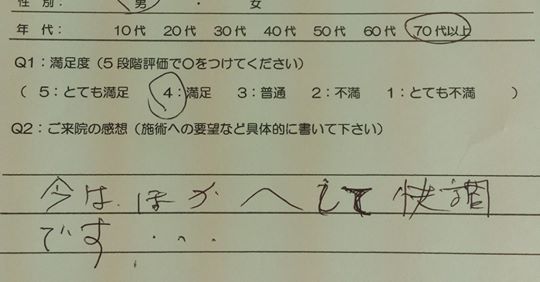 性 別： 男 ・ 女
年 代： 10代 20代 30代 40代 50代 60代 70代以上
Q1：満足度（5段階評価で〇をつけてください）
（ 5：とても満足 4：満足 3：普通 2：不満 1：とても不満 ）
Q2：ご来院の感想（施術への要望など具体的に書いて下さい）
今は、ほが へ して 快調
です・・・